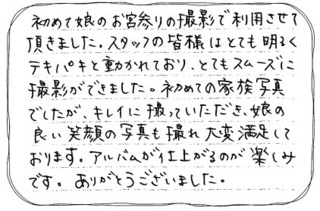 初めて娘のお宮参りの撮影で利用させて
頂きました。スタッフの皆様はとても明るく
テキパキと動かれており、とてもスムーズに
撮影ができました。初めての家族写真
でしたが、キレイに撮っていただき、娘の
良い笑顔の写真も撮れ大変満足して
おります。アルバムが仕上がるのが楽しみ
です。ありがとうございました。